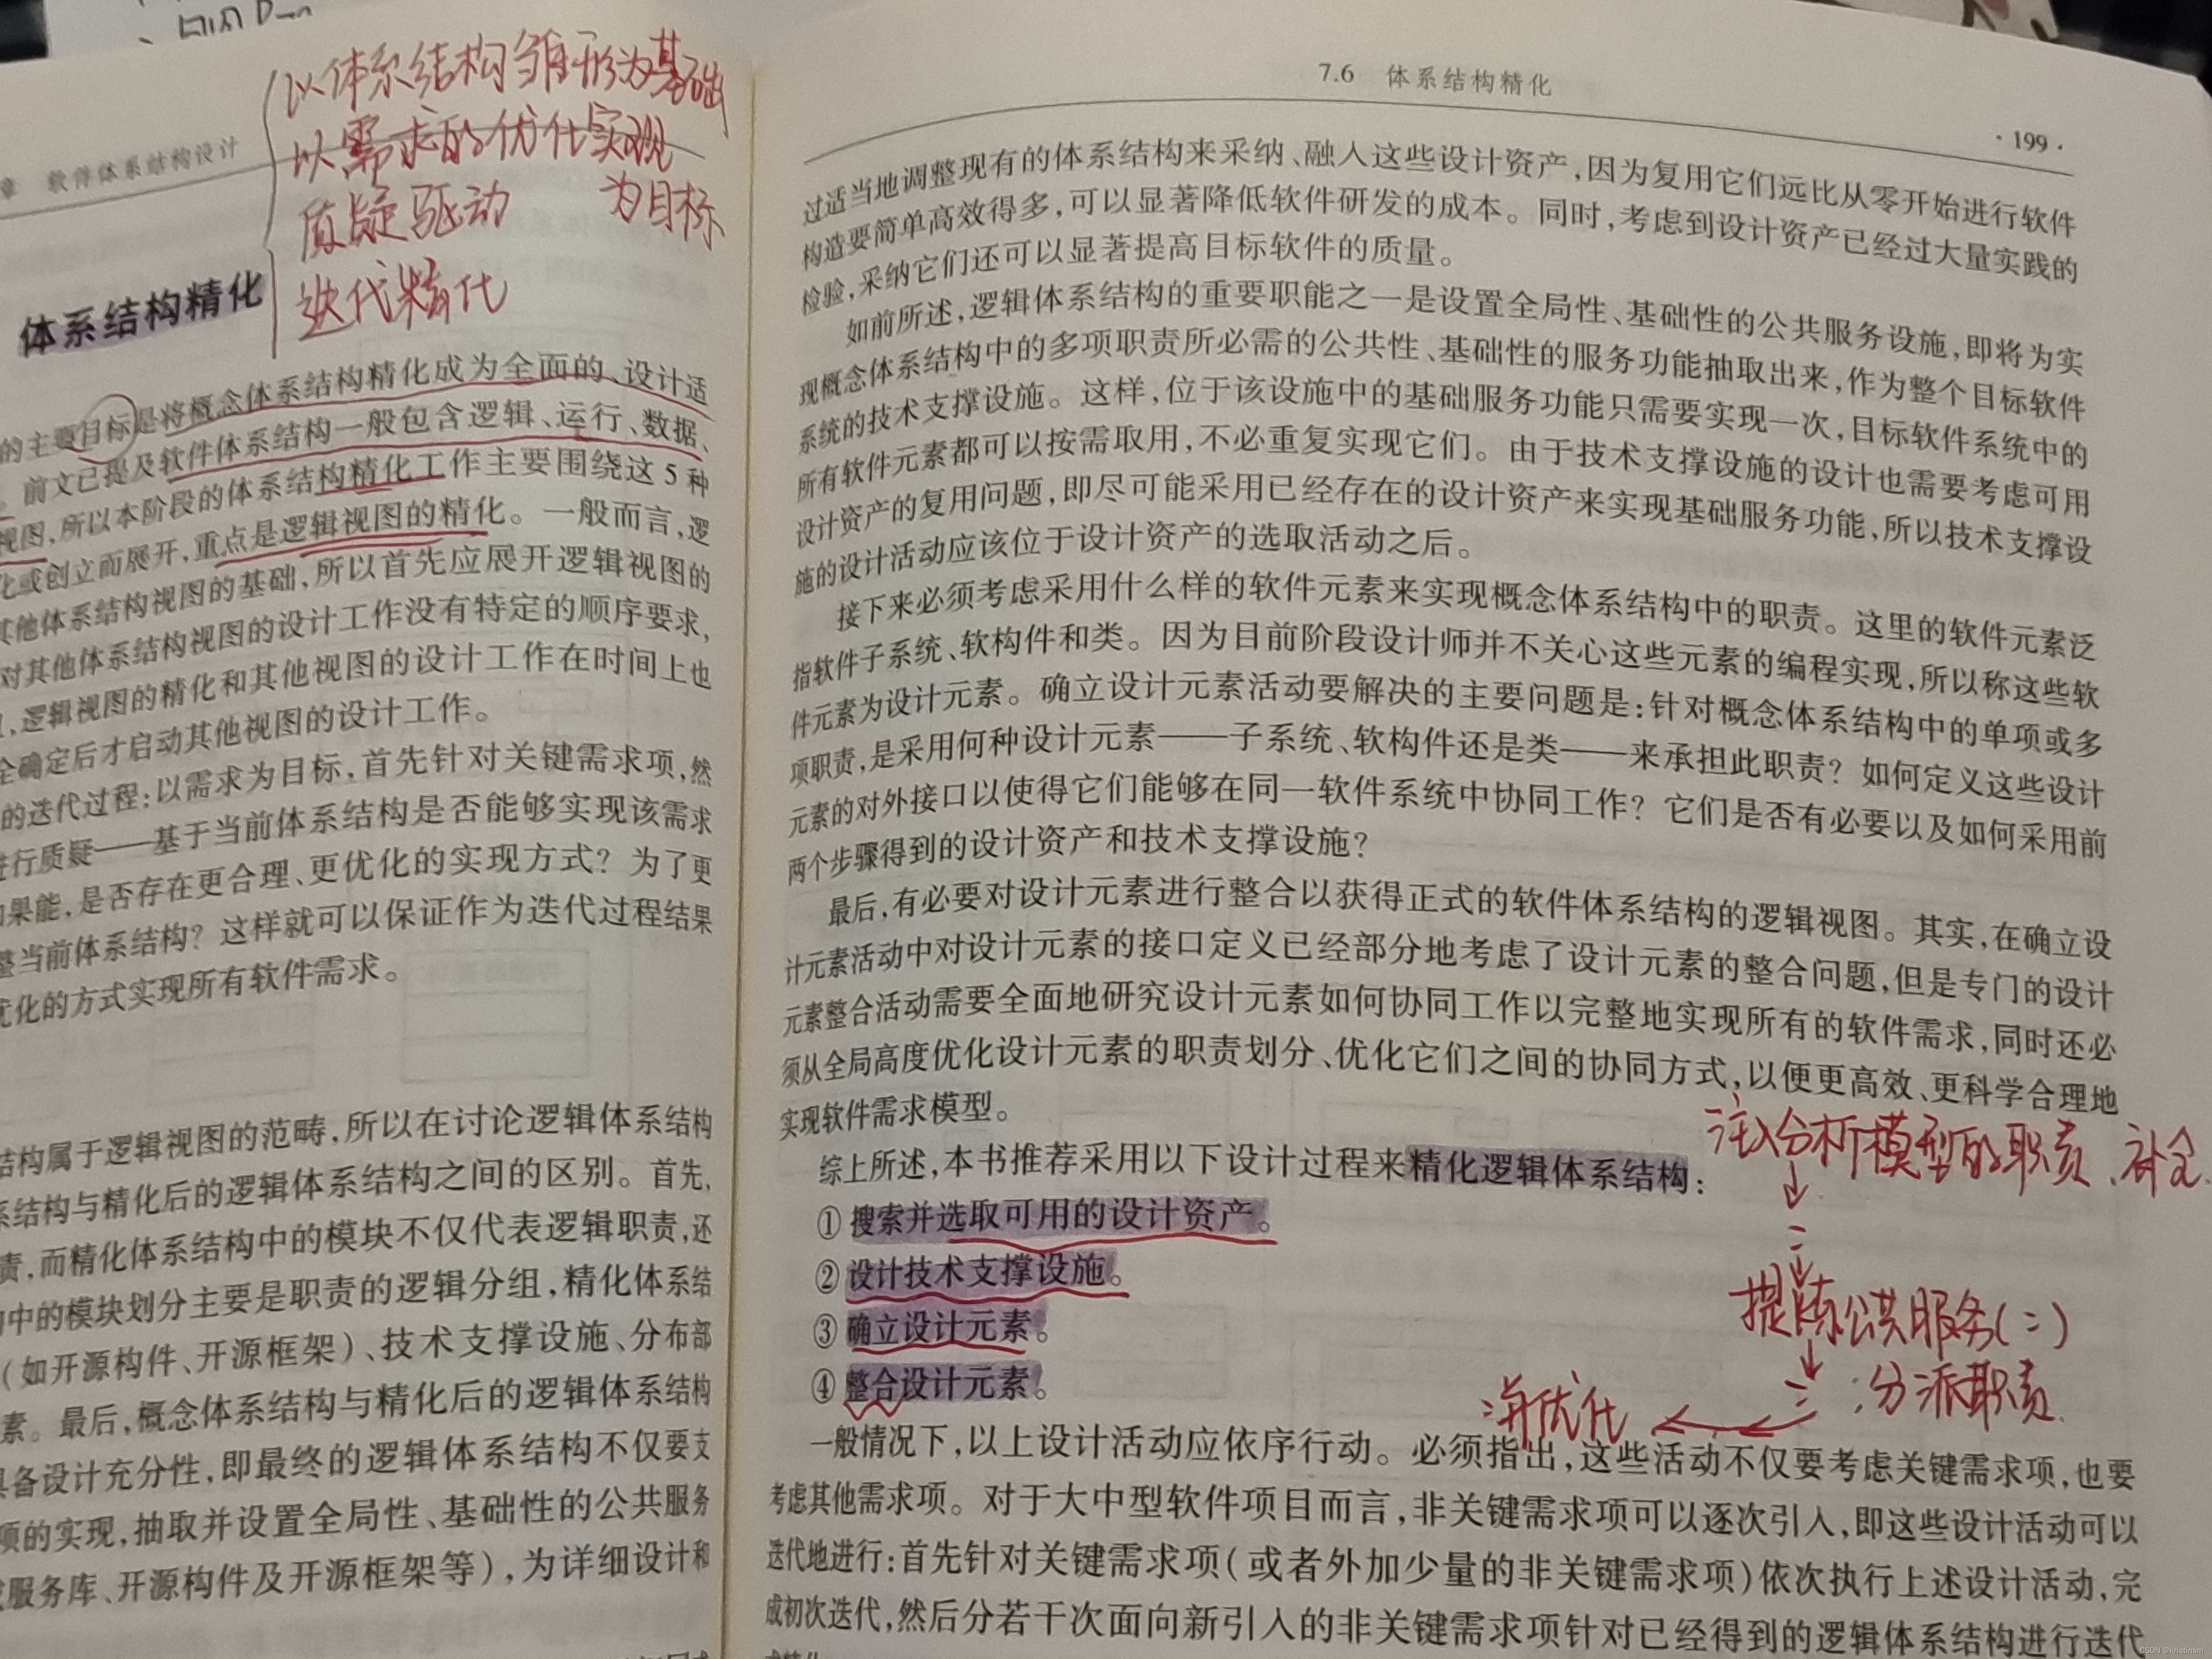 以体系结构雏形为基础
以需求的优化实现
为目标
质疑驱动
迭代精化
章 软件体系结构设计
体系结构精化
的主要目标是将概念体系结构精化成为全面的、设计适
。前文已提及软件体系结构一般包含逻辑、运行、数据、
视图,所以本阶段的体系结构精化工作主要围绕这 5 种
化或创立而展开,重点是逻辑视图的精化。一般而言,逻
其他体系结构视图的基础,所以首先应展开逻辑视图的
对其他体系结构视图的设计工作没有特定的顺序要求,
,逻辑视图的精化和其他视图的设计工作在时间上也
全确定后才启动其他视图的设计工作。
的迭代过程:以需求为目标,首先针对关键需求项,然
进行质疑——基于当前体系结构是否能够实现该需求
如果能,是否存在更合理、更优化的实现方式?为了更
整当前体系结构?这样就可以保证作为迭代过程结果
优化的方式实现所有软件需求。
结构属于逻辑视图的范畴,所以在讨论逻辑体系结构
系结构与精化后的逻辑体系结构之间的区别。首先,
责,而精化体系结构中的模块不仅代表逻辑职责,还
中的模块划分主要是职责的逻辑分组,精化体系结
(如开源构件、开源框架)、技术支撑设施、分布部
素。最后,概念体系结构与精化后的逻辑体系结构
具备设计充分性,即最终的逻辑体系结构不仅要支
项的实现,抽取并设置全局性、基础性的公共服务
服务库、开源构件及开源框架等),为详细设计和
7.6 体系结构精化
· 199 ·
过适当地调整现有的体系结构来采纳、融入这些设计资产,因为复用它们远比从零开始进行软件
构造要简单高效得多,可以显著降低软件研发的成本。同时,考虑到设计资产已经过大量实践的
检验,采纳它们还可以显著提高目标软件的质量。
如前所述,逻辑体系结构的重要职能之一是设置全局性、基础性的公共服务设施,即将为实
现概念体系结构中的多项职责所必需的公共性、基础性的服务功能抽取出来,作为整个目标软件
系统的技术支撑设施。这样,位于该设施中的基础服务功能只需要实现一次,目标软件系统中的
所有软件元素都可以按需取用,不必重复实现它们。由于技术支撑设施的设计也需要考虑可用
设计资产的复用问题,即尽可能采用已经存在的设计资产来实现基础服务功能,所以技术支撑设
施的设计活动应该位于设计资产的选取活动之后。
接下来必须考虑采用什么样的软件元素来实现概念体系结构中的职责。这里的软件元素泛
指软件子系统、软构件和类。因为目前阶段设计师并不关心这些元素的编程实现,所以称这些软
件元素为设计元素。确立设计元素活动要解决的主要问题是:针对概念体系结构中的单项或多
项职责,是采用何种设计元素——子系统、软构件还是类——来承担此职责?如何定义这些设计
元素的对外接口以使得它们能够在同一软件系统中协同工作?它们是否有必要以及如何采用前
两个步骤得到的设计资产和技术支撑设施?
最后,有必要对设计元素进行整合以获得正式的软件体系结构的逻辑视图。其实,在确立设
计元素活动中对设计元素的接口定义已经部分地考虑了设计元素的整合问题,但是专门的设计
元素整合活动需要全面地研究设计元素如何协同工作以完整地实现所有的软件需求,同时还必
须从全局高度优化设计元素的职责划分、优化它们之间的协同方式,以便更高效、更科学合理地
实现软件需求模型。
综上所述,本书推荐采用以下设计过程来精化逻辑体系结构:
① 搜索并选取可用的设计资产。
② 设计技术支撑设施。
③ 确立设计元素。
④ 整合设计元素。
注入分析模型的职责、补全
提炼公共服务(二)
三:分派职责
再优化
一般情况下,以上设计活动应依序行动。必须指出,这些活动不仅要考虑关键需求项,也要
考虑其他需求项。对于大中型软件项目而言,非关键需求项可以逐次引入,即这些设计活动可以
迭代地进行:首先针对关键需求项(或者外加少量的非关键需求项)依次执行上述设计活动,完
成初次迭代,然后分若干次面向新引入的非关键需求项针对已经得到的逻辑体系结构进行迭代
CSDN @kristinsm